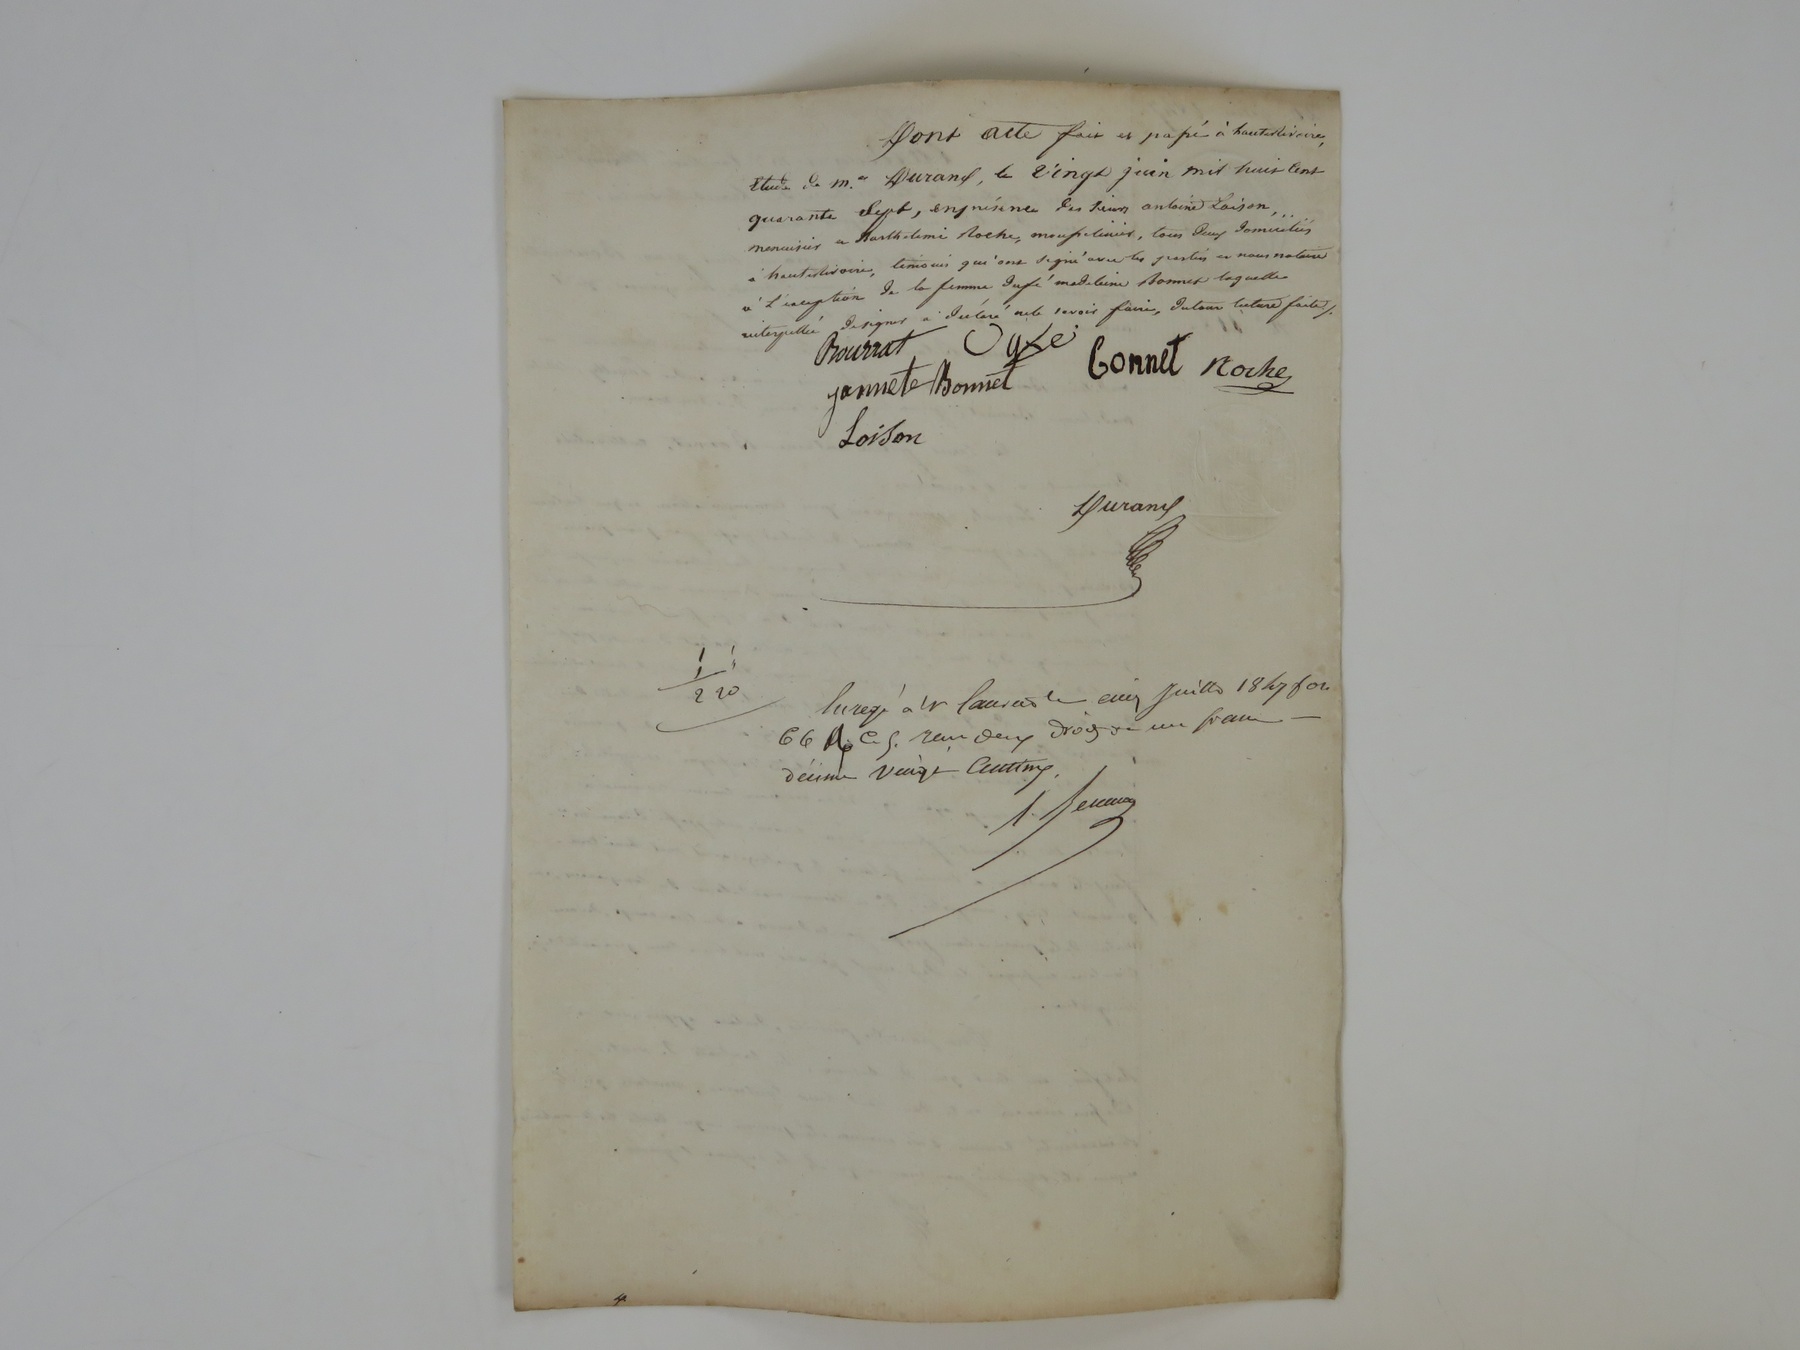 Dont acte fait et passé à hauterivoire,
Etude de m.e Durand, le vingt juin mil huit cent
quarante Sept, en présence des Sieurs antoine Loison,
menuisier et Barthelemi Roche, , tous deux domiciliés
à hauterivoire, temoins qui ont signé avec les parties et nous notaire
à l'éxception de la femme madeleine Bonnet laquelle
interpellée de signer a déclaré ne le savoir faire, de tout lecture faite.
Bourrat Ogxe Bonnet Roche
jannete Bonnet
Loison
Durand
1 1
2 20
Enregé à St Laurent le cinq Juillet 1847 fol.
66 Ro C. 5. reçu deux droits de un franc
décime vingt Centimes.